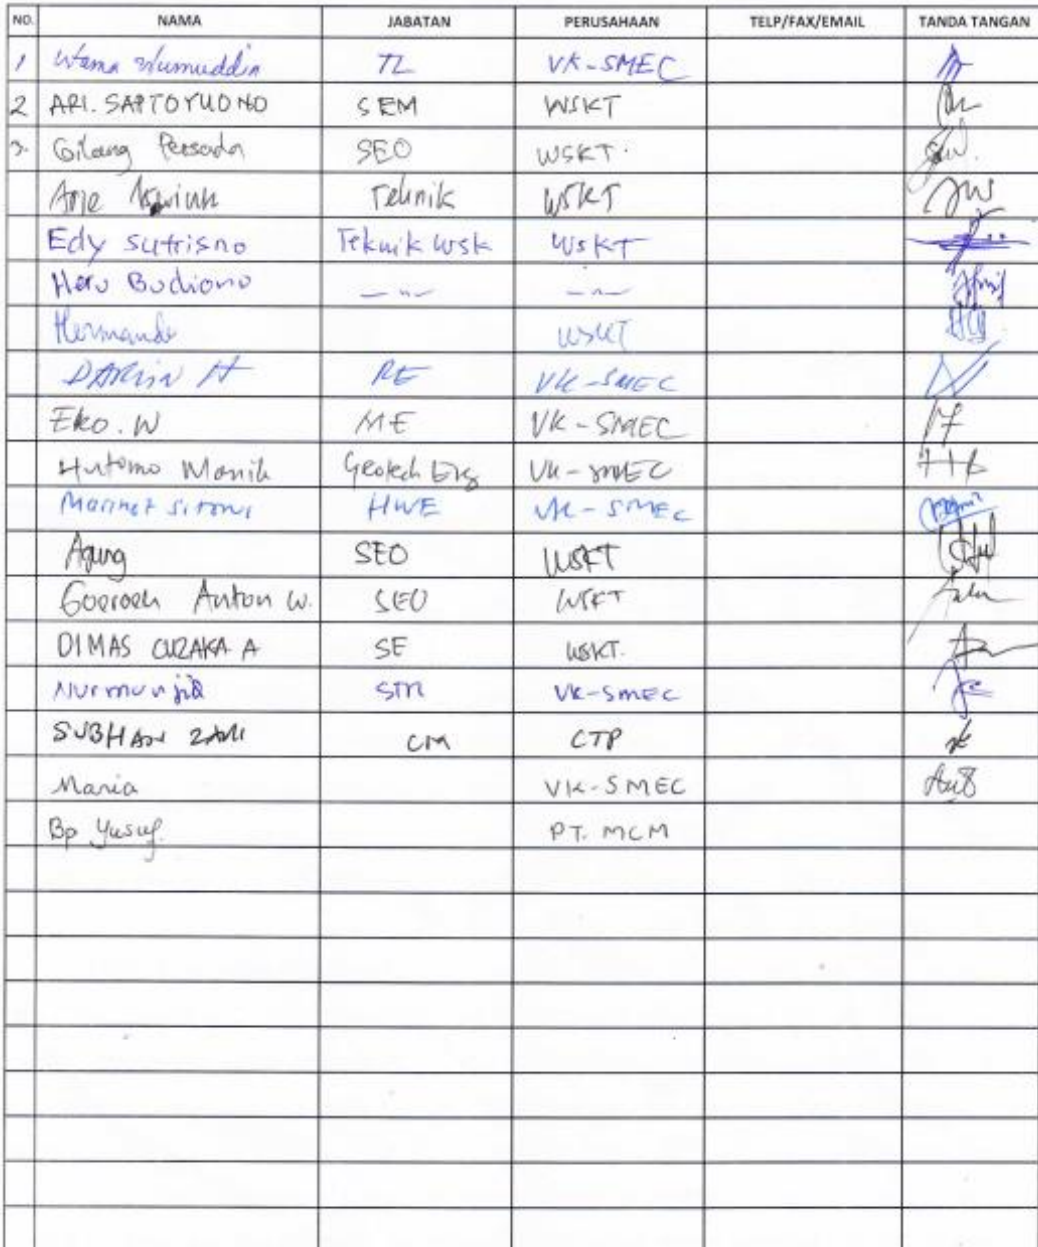 NO. NAMA JABATAN PERUSAHAAN TELP/FAX/EMAIL TANDA TANGAN
1 TL VK-SMEC
2 ARI. SAPTOYUONO SEM WSKT
3. Gilang Persada SEO WSKT.
Arie Teknik WSKT
Edy Sutrisno Teknik WSK WSKT
Heru Budiono — " — — " —
Hermando WSKT
DARLIN H RE VK-SMEC
Eko. W ME VK-SMEC
Hutomo Manik Geotech Eng VK-SMEC
HWE VK-SMEC
Agung SEO WSKT
Anton W. SEO WSKT
DIMAS CURAKA A SE WSKT.
STR VK-SMEC
SUBHAN CM CTP
Maria VK-SMEC
Bp Yusuf. PT. MCM